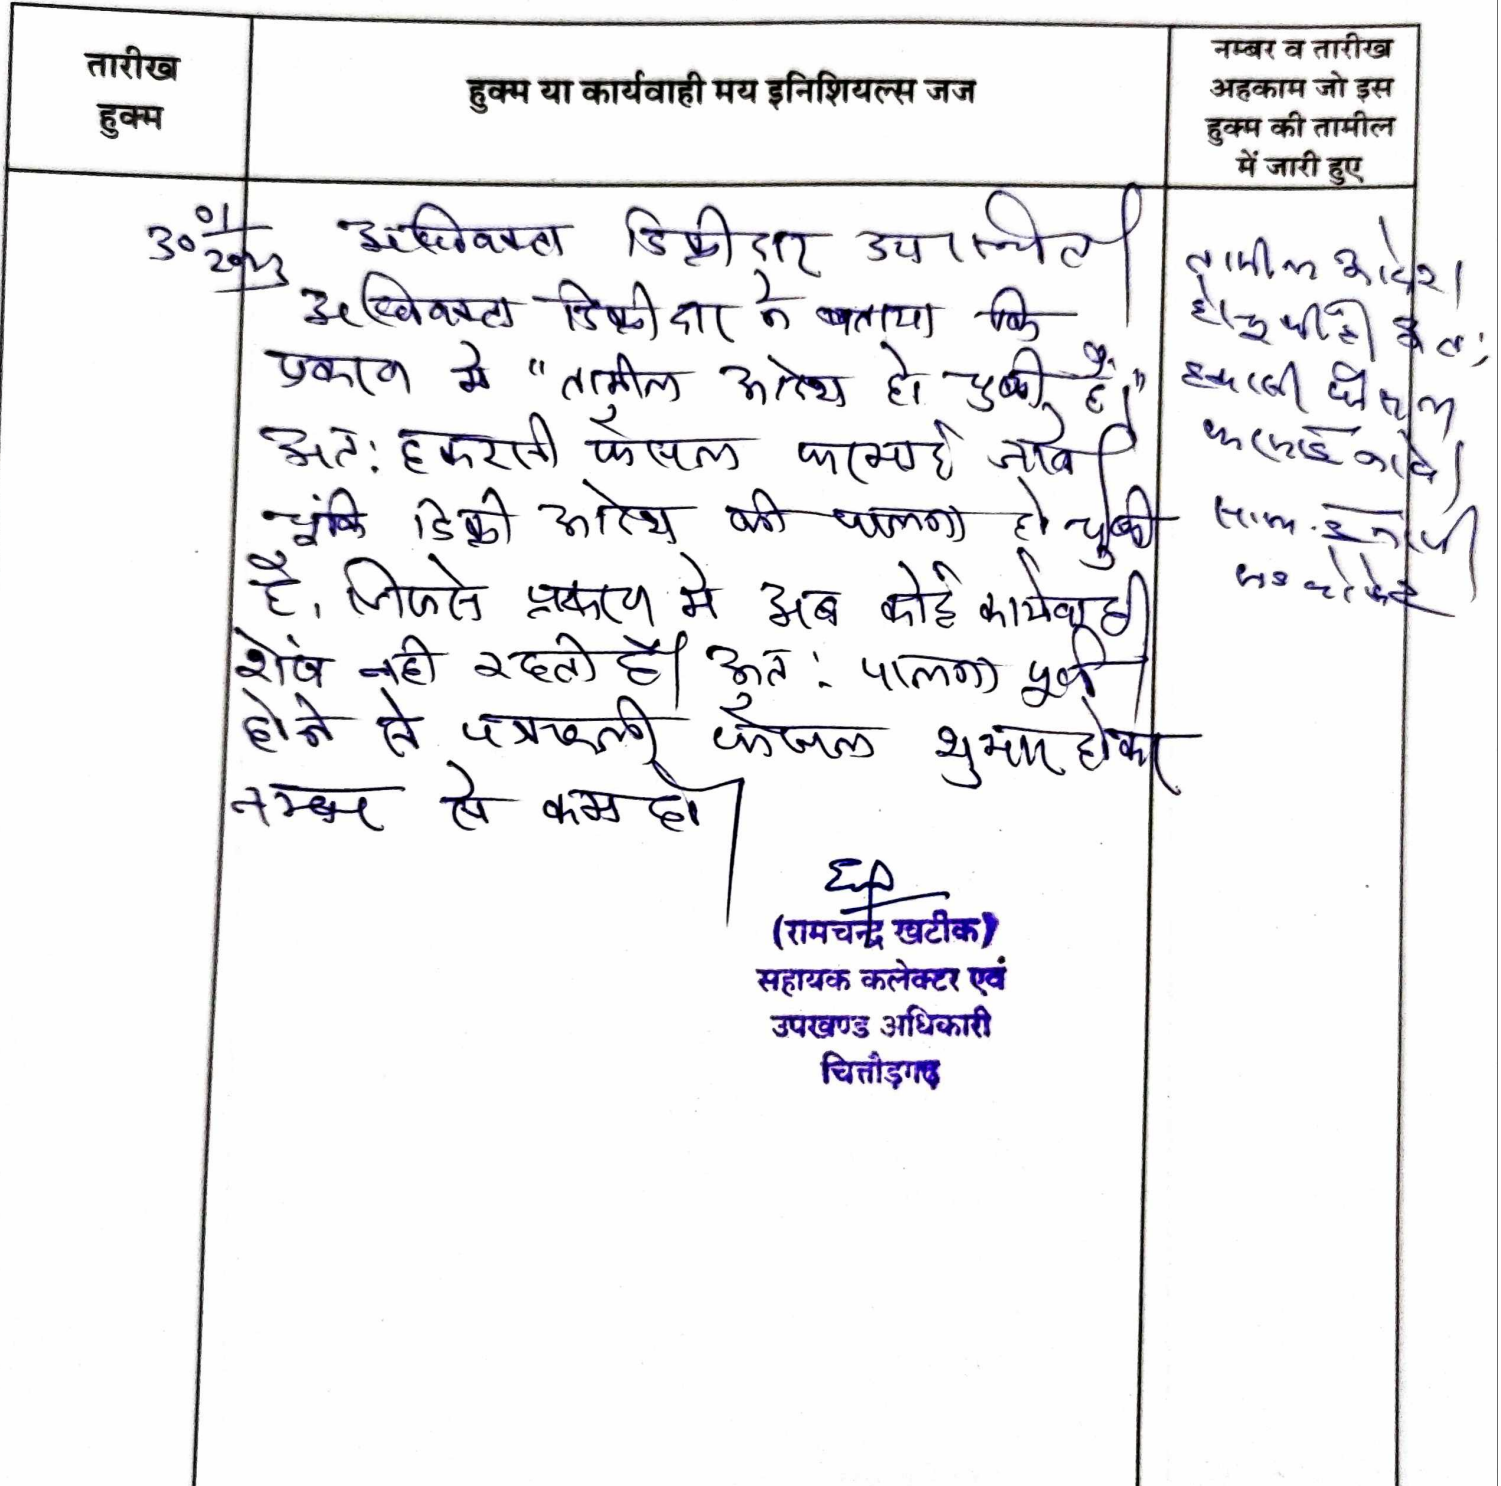 तारीख
हुक्म
हुक्म या कार्यवाही मय इनिशियल्स जज
नम्बर व तारीख
अहकाम जो इस
हुक्म की तामील
में जारी हुए
30 01
अधिवक्ता डिक्रीदार उपस्थित।
अधिवक्ता डिक्रीदार ने बताया कि
प्रकरण मे "तामील आदेश हो चुकी है।"
अतः इकराती फैसल फरमाई जावे।
चूंकि डिक्री आदेश की पालना हो चुकी
है, जिससे प्रकरण मे अब कोई कार्यवाही
शेष नही रहती है। अतः पालना पूर्ण
होने से पत्रावली फैसल शुमार होकर
नम्बर से कम हो।
तामील आदेश
हो चुकी है अतः
फैसल
फरमाई जावे।
(रामचन्द्र खटीक)
सहायक कलेक्टर एवं
उपखण्ड अधिकारी
चित्तौड़गढ़